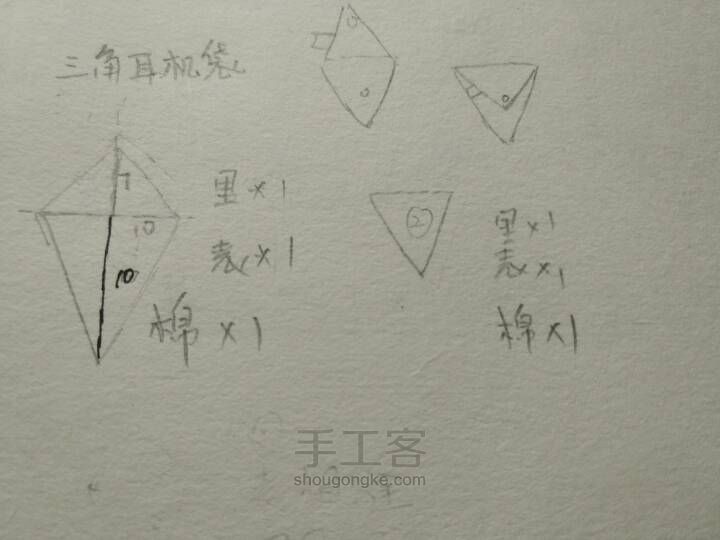 三角耳机袋
7
10
10
里×1
表×1
棉×1
②
里×1
表×1
棉×1
手工客
shougongke.com